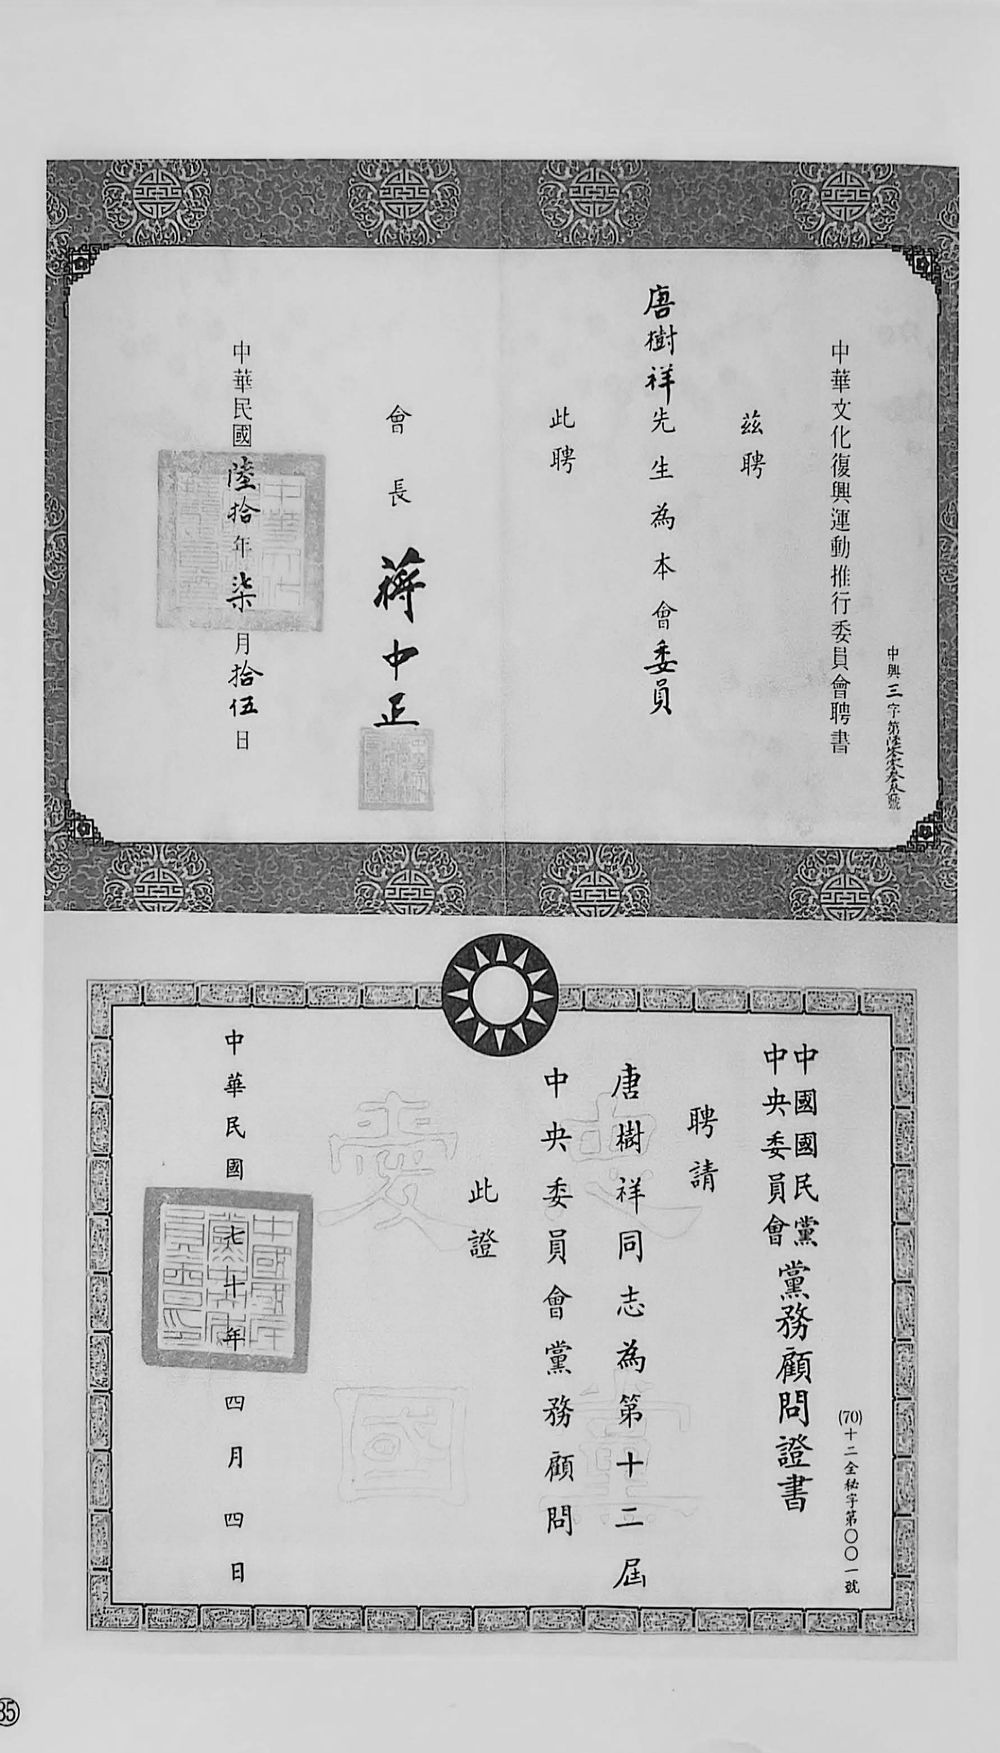 中華文化復興運動推行委員會聘書
茲聘
唐樹祥先生為本會委員
此聘
會長 蔣中正
中華民國陸拾年柒月拾伍日
(70)十二全秘字第〇〇一號
中國國民黨中央委員會黨務顧問證書
聘請
唐樹祥同志為第十二屆
中央委員會黨務顧問
此證
中華民國七十年四月四日
忠黨愛國
85